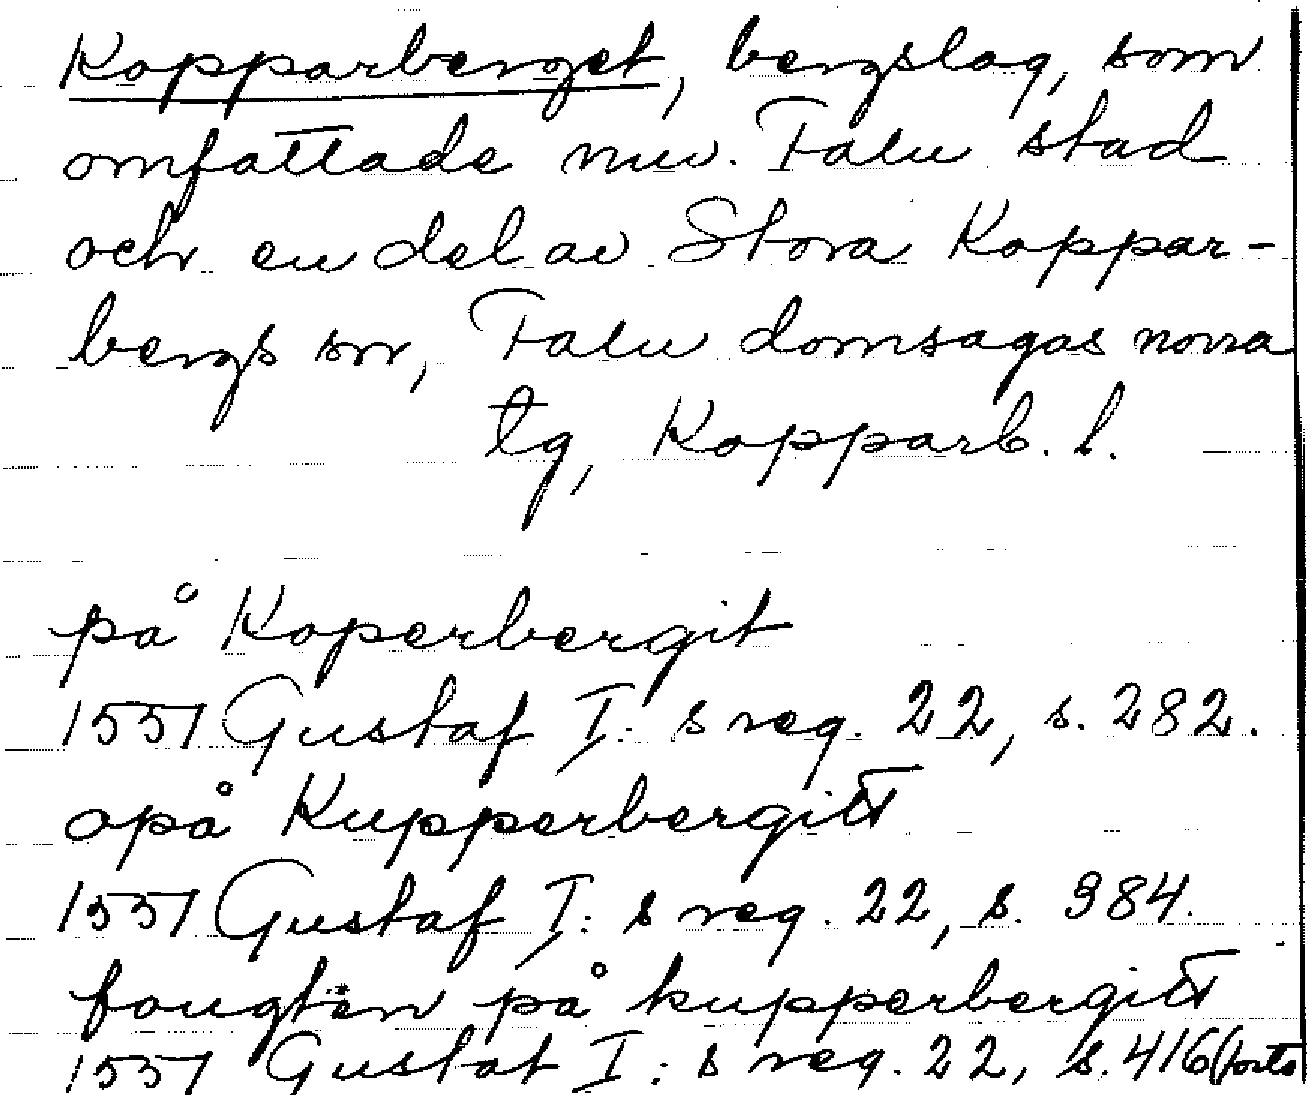 Kopparberget, bergslag, som
omfattade nuv. Falu stad
och en del av Stora Koppar-
bergs sn, Falu domsagas norra
tg, Kopparb. l.
på Koperbergit
1551 Gustaf I:s reg. 22, s. 282.
opå Kupperbergitt
1551 Gustaf I:s reg. 22, s. 384.
fougten på kupperbergitt
1551 Gustaf I:s reg. 22, s. 416 (forts